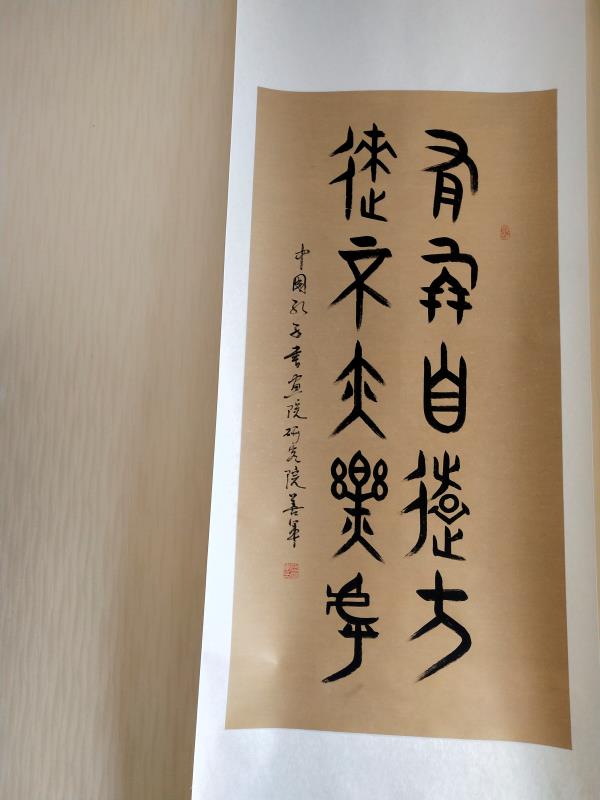 有朋自遠方
來不亦樂乎
中國孔子書画院研究院善軍